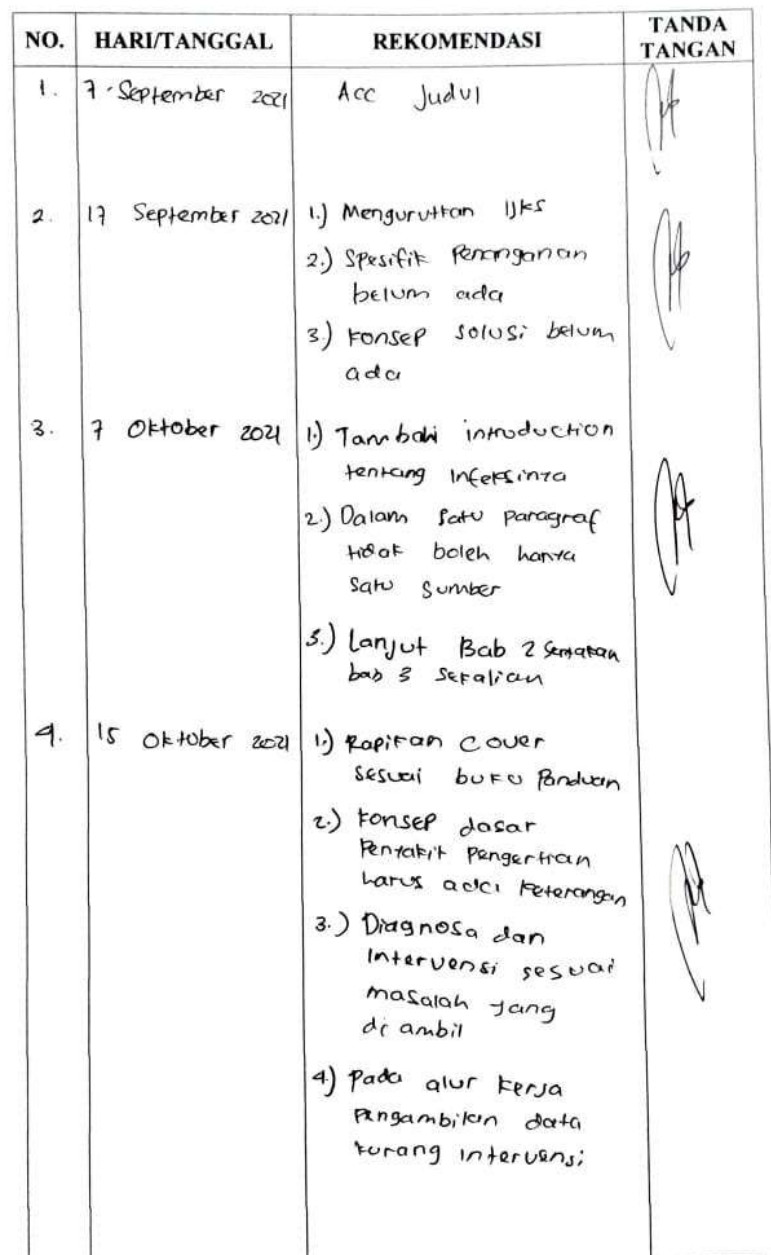 NO. HARI/TANGGAL REKOMENDASI TANDA TANGAN
1. 7 September 2021 Acc Judul
2. 17 September 2021 1.) Mengurutkan IJKS
2.) Spesifik Penanganan
belum ada
3.) Konsep solusi belum
ada
3. 7 Oktober 2021 1.) Tambahi introduction
tentang Infeksinya
2.) Dalam satu paragraf
tidak boleh hanya
satu sumber
3.) Lanjut Bab 2
bab 3 sekalian
4. 15 Oktober 2021 1.) Rapikan cover
sesuai buku Panduan
2.) Konsep dasar
Penyakit Pengertian
harus ada keterangan
3.) Diagnosa dan
Intervensi sesuai
masalah yang
di ambil
4.) Pada alur kerja
Pengambilan data
kurang intervensi